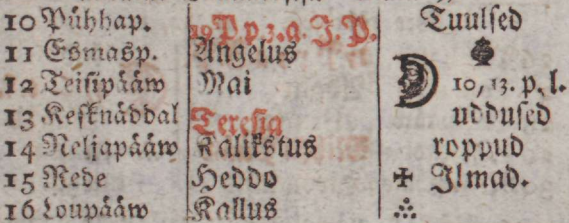 10 Pühhap. 19 P. p. 3. q. J. P. Tuulsed
11 Esmasp. Angelus
12 Teisipääw Mai 10, 13. p. l.
13 Kesknäddal Teresia uddused
14 Neljapääw Kalikstus roppud
15 Rede Heddo ✠ Ilmad.
16 Loupääw Kallus